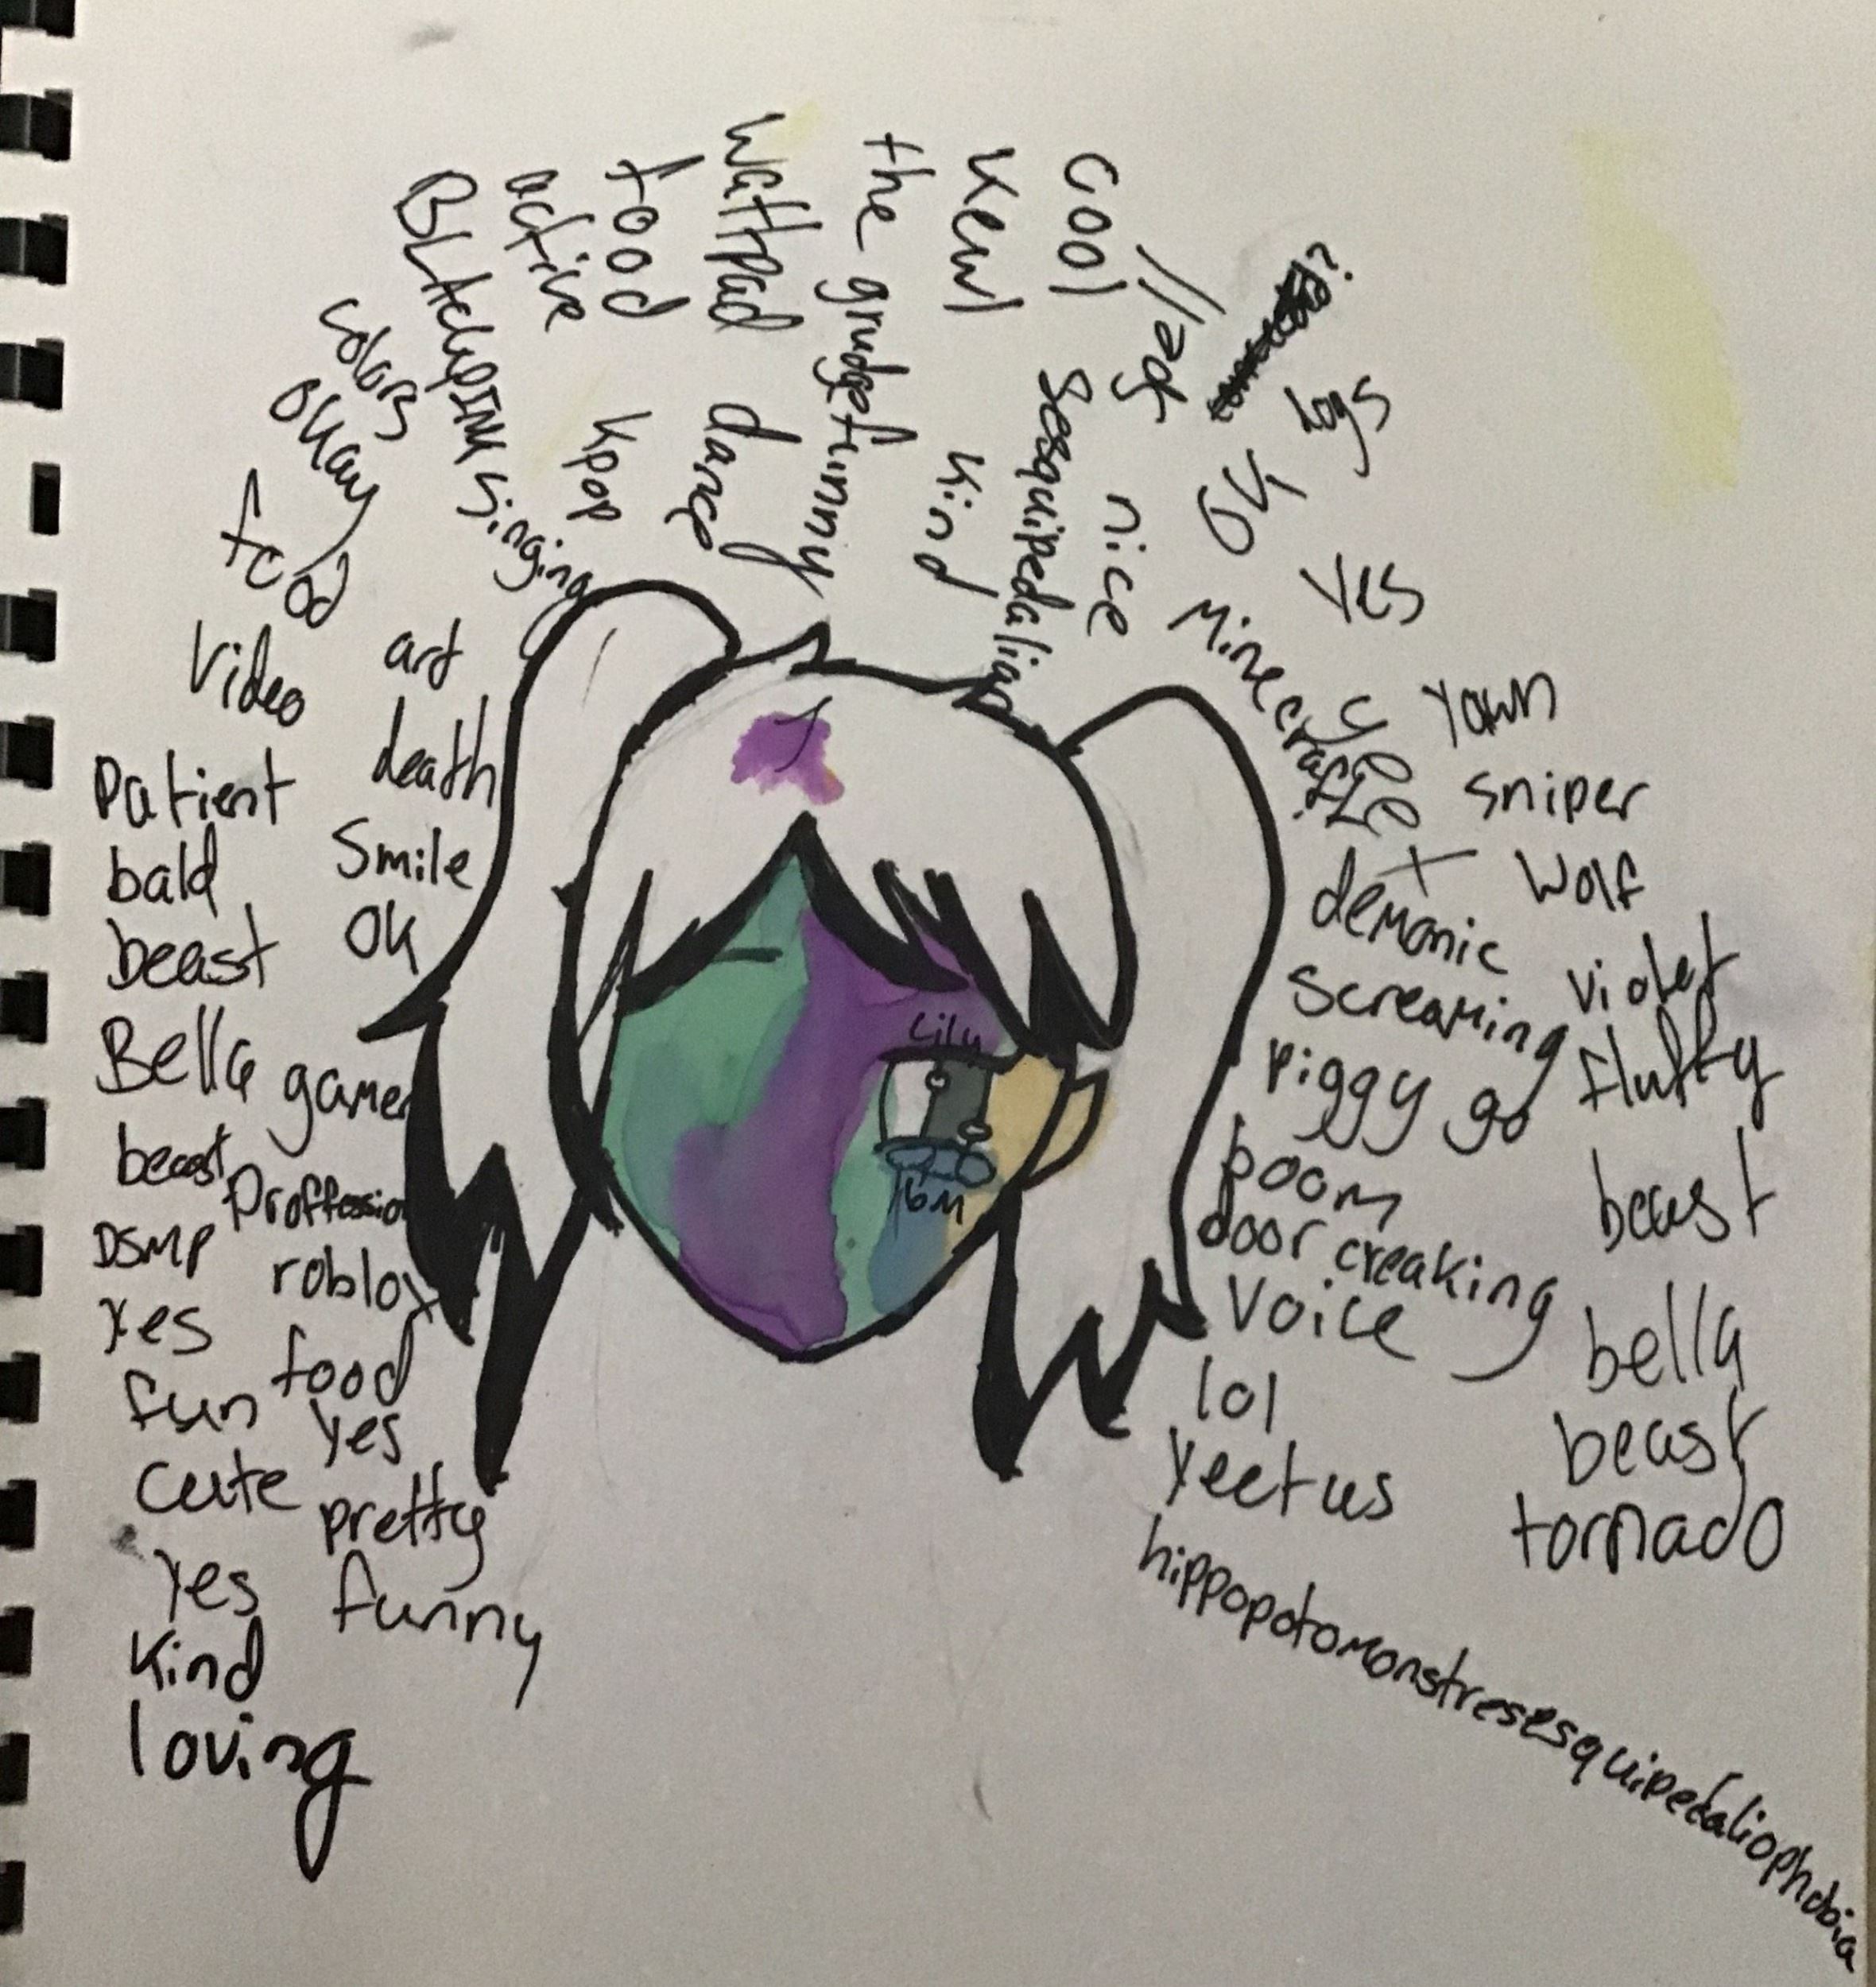 loving
Kind
Yes
funny
cute
pretty
fun
yes
Yes
food
DSMP
roblox
beast
Proffession
Bella
gamer
beast
Ok
bald
Smile
Patient
death
Video
art
food
okay
colors
BLACKPINK
singing
active
kpop
food
Wattpad
dance
the grudge
funny
Kewl
Kind
Cool
Sesquipedalian
nice
Ok
Yes
Minecraft
yeet
Yawn
Sniper
Wolf
demonic
Violet
Screaming
fluffy
Piggy go
boom
beast
door creaking
Voice
bella
lol
beast
Yeetus
tornado
hippopotomonstresesquipedaliophobia
Lily